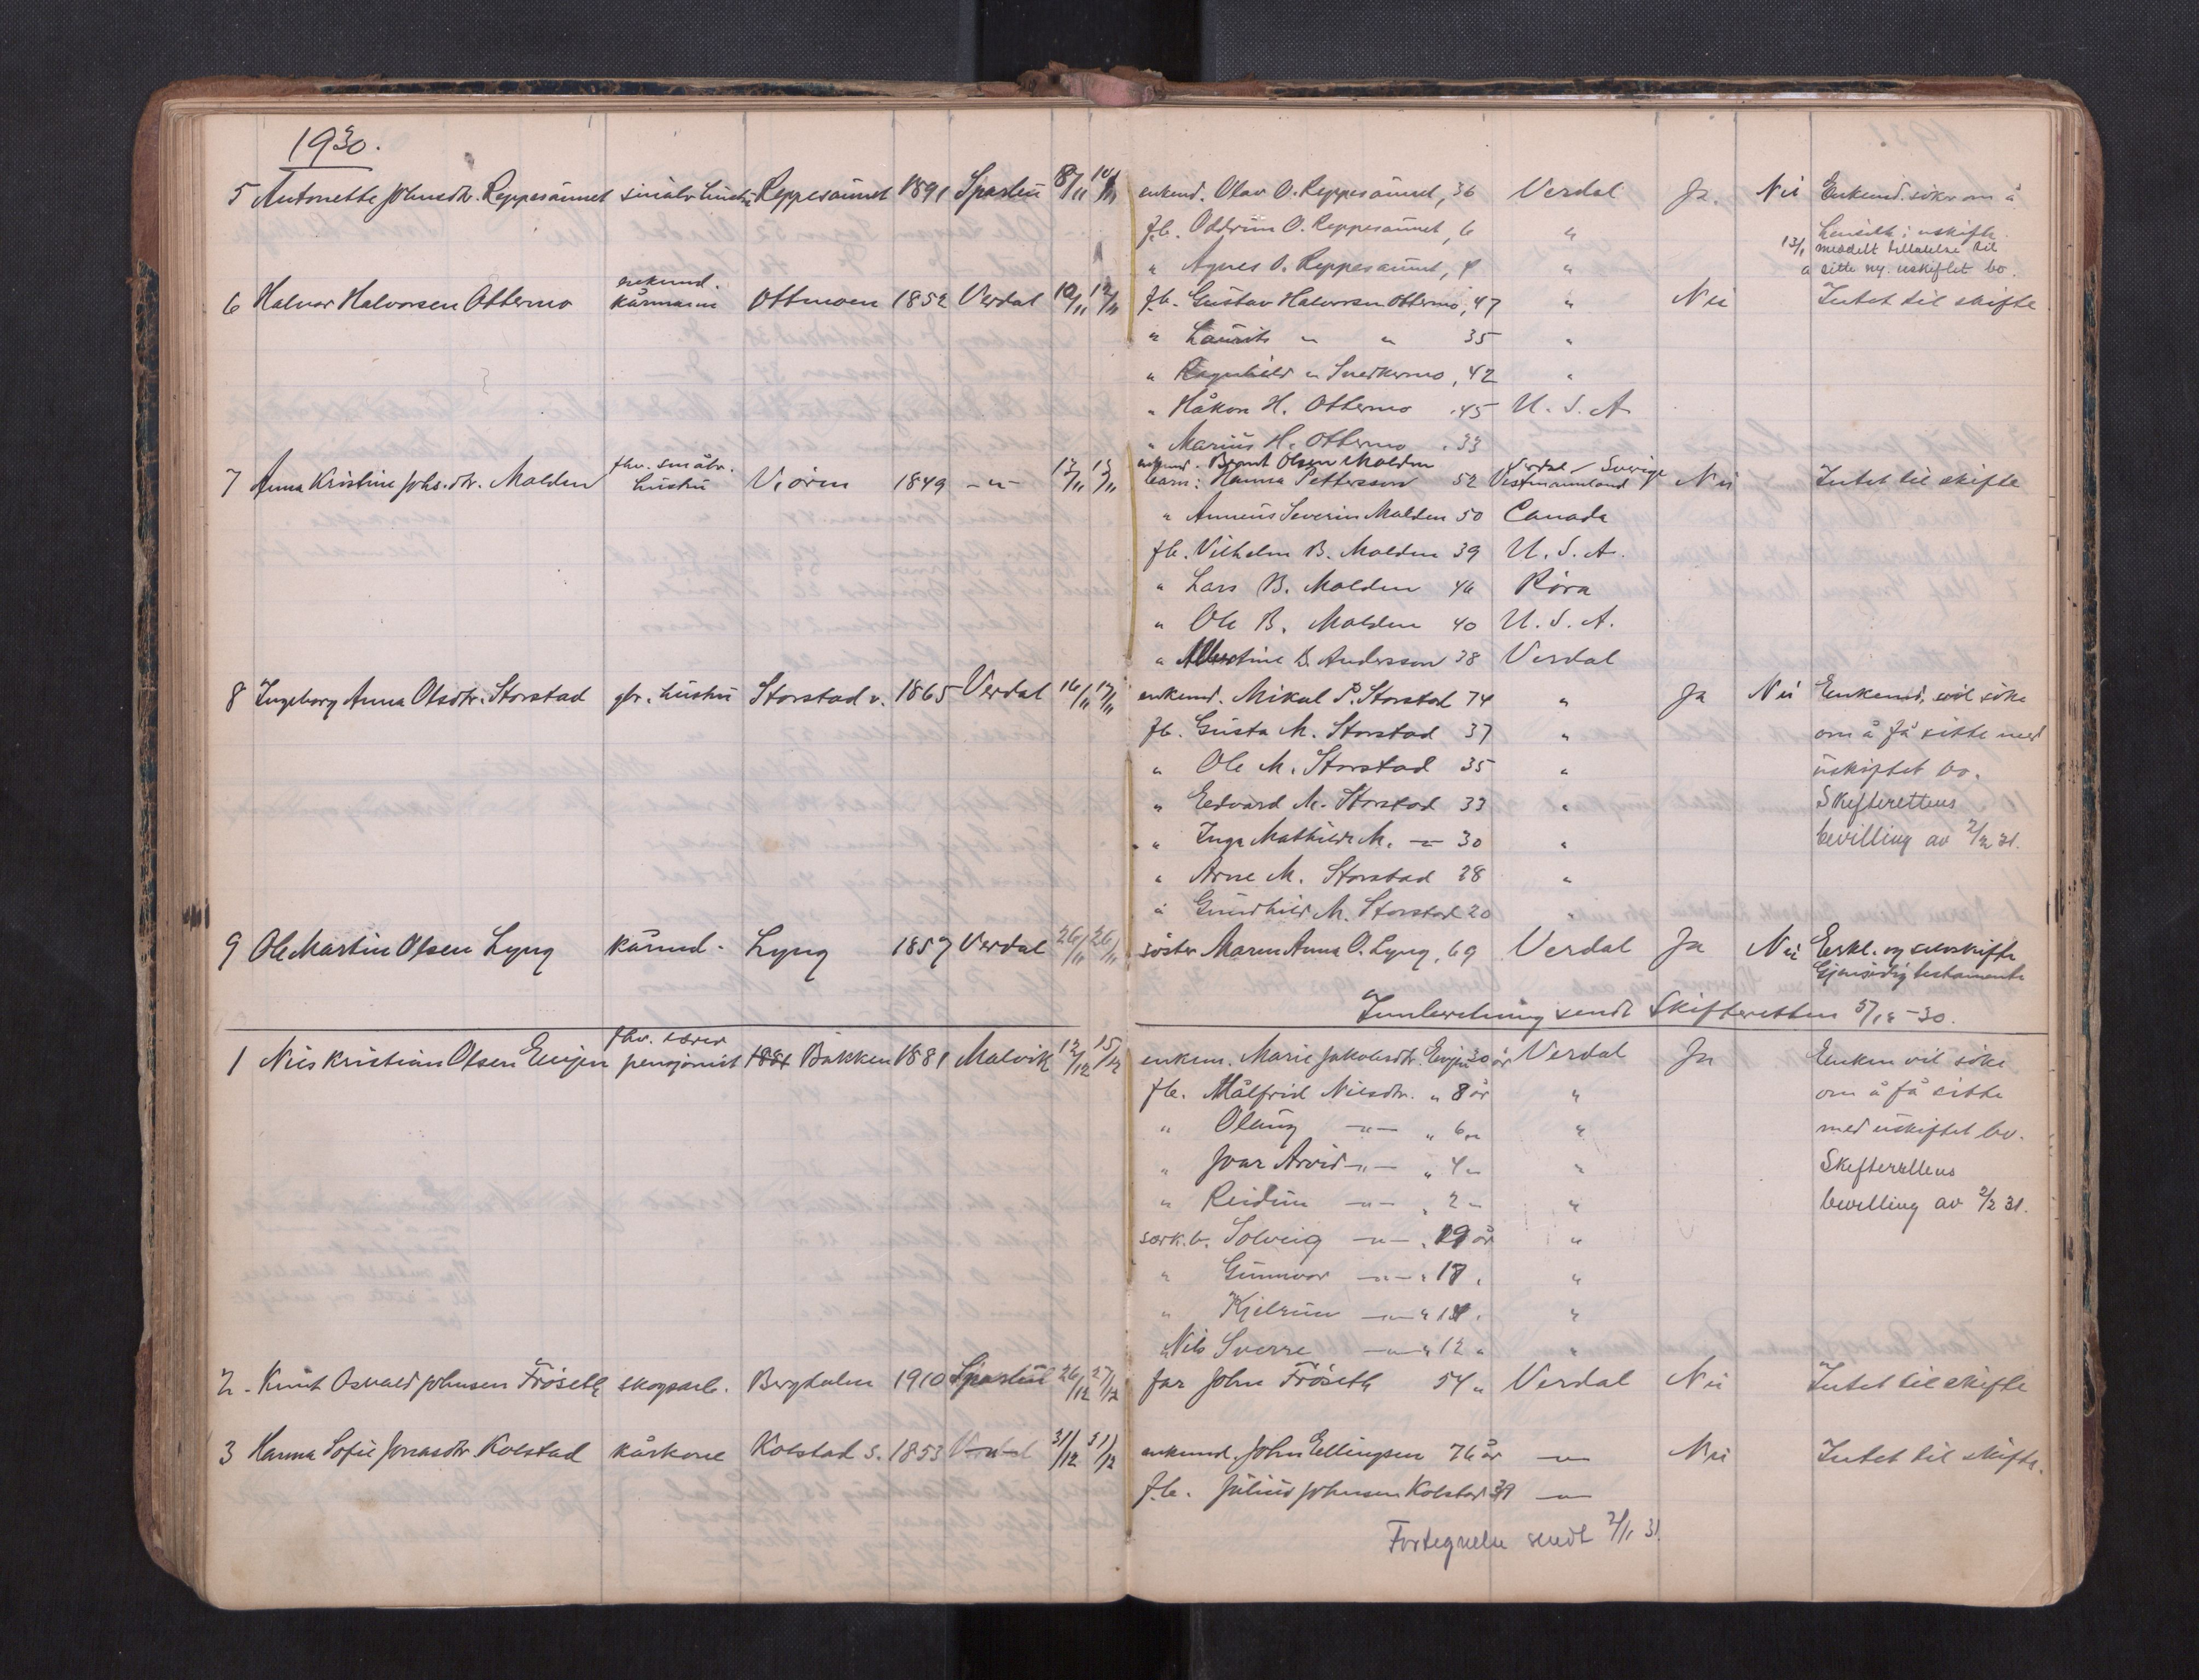 1930.
5 Antonette Johnsdr. Reppesaunet småbr. hustru Reppesaunet 1891 Sparbu 8/11 10/11 enkem. Olav O. Reppesaunet, 36 Verdal Ja. Nei Enkem. søker om å
fb. Oddrun O. Reppesaunet, 6 " hensitte i uskifte.
" Agnes O. Reppesaunet, 4 " 13/1 meddelt tillatelse til
å sitte uskiftet bo.
6 Halvor Halvorsen Ottermo enkemd. kårmann Ottmoen 1852 Verdal 10/11 12/11 fb. Gustav Halvorsen Ottermo, 47 " Nei Intet til skifte
" Laurits " " 35 "
" Ragnhild " Snedkermo, 42 "
" Håkon H. Ottermo . 45 U. S. A.
" Marius H. Ottermo . 33
7 Anna Kristine Johs.dtr. Molden fhv. småbr. hustru Viören 1849 -"- 12/11 13/11 enkemd. Bernt Olsen Molden Verdal
barn: Hanna Pettersson 52 Vestmannland Sverige Nei Intet til skifte
" Anneus Severin Molden 50 Canada
fb. Vilhelm B. Molden 39 U. S. A.
" Lars B. Molden 46 Röra
" Ole B. Molden 40 U. S. A.
" Albertine B. Andersson 38 Verdal
8 Ingeborg Anna Olsdtr. Storstad gbr. hustru Storstad v. 1865 Verdal 16/11 17/11 enkemd. Mikal P. Storstad 74 " Ja Nei Enkemd. vil söke
fb. Gusta M. Storstad 37 " om å få sitte med
" Ole M. Storstad 35 " uskiftet bo.
" Edvard M. Storstad 33 " Skifterettens
" Inga Mathilde M. -"- 30 " bevilling av 2/2 31.
" Arne M. Storstad 28 "
" Gunhild M. Storstad 20 "
9 Ole Martin Olsen Lyng kårmd. Lyng 1857 Verdal 26/11 26/11 söster Maren Anna O. Lyng, 69 Verdal Ja Nei Erkl. og selvskifte
Gjensidig testamente
Innberetning sendt Skifteretten 5/12-30.
1 Nils Kristian Olsen Evjen fhv. lærer pensjonist 1881 Bakken 1881 Malvik 12/12 15/12 enkem. Marie Jakobsdtr. Evjen 30 år Verdal Ja Enken vil söke
fb. Målfrid Nilsdtr. " 8 år " om å få sitte
" Olaug -"- " 6 " " med uskiftet bo.
" Ivar Arvid -"- " 4 " " Skifterettens
" Reidun -"- " 2 " " bevilling av 2/2 31.
særk.b. Solveig -"- . 19 år "
" Gunnvor -"- " 17 . "
" Kjelrun -"- " 14 . "
" Nils Sverre -"- " 12 " "
2. Knut Osvald Johnsen Fröseth skogsarb. Bergdalen 1910 Sparbu 26/12 27/12 far John Fröseth 54 " Verdal Nei Intet til skifte
3 Hanna Sofie Jonasdtr. Kolstad kårkone Kolstad s. 1853 31/12 31/12 enkemd. John Ellingsen 76 år -"- Nei Intet til skifte.
fb. Julius Johnsen Kolstad 39 -"-
Fortegnelse sendt 2/1 31.